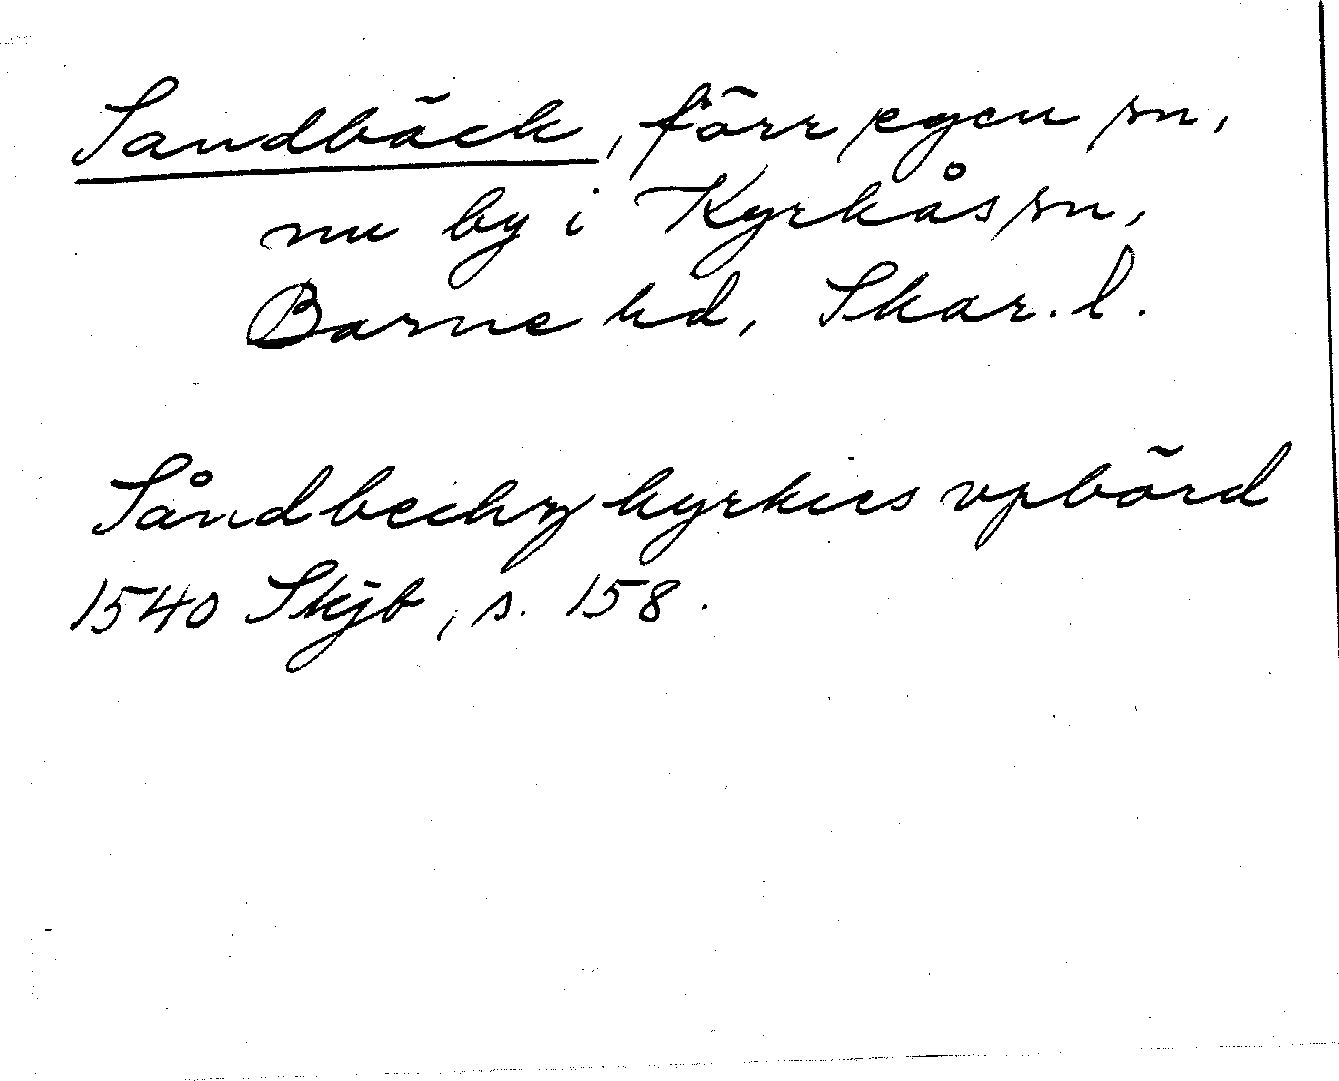 Sandbäck, förr egen sn,
nu by i Kyrkås sn,
Barne hd, Skar. l.
Såndbechz kyrkies vpbörd
1540 Skjb, s. 158.